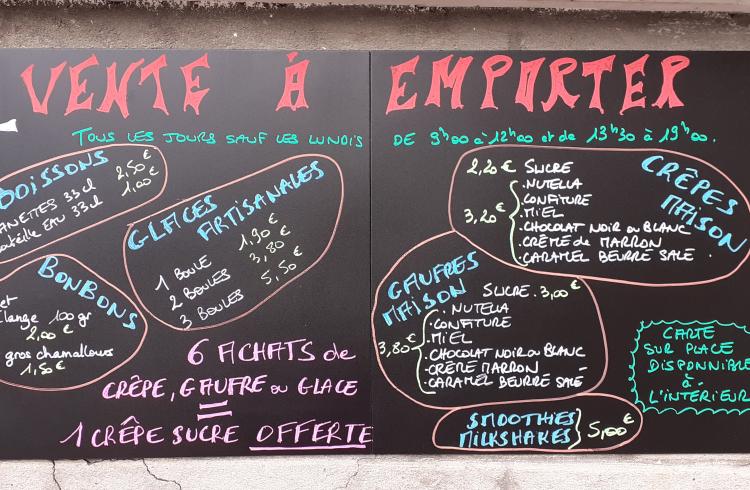 VENTE À EMPORTER
TOUS LES JOURS SAUF LES LUNDIS DE 9h00 à 12h00 et de 13h30 à 19h00.
BOISSONS
ANETTES 33cl 2,50 €
outeille EAU 33cl 1,00 €
GLACES ARTISANALES
1 BOULE 1,90 €
2 BOULES 3,80 €
3 BOULES 5,50 €
BONBONS
et
lange 100 gr
2,00 €
gros chamallows
1,50 €
6 ACHATS de
CRÊPE, GAUFRE ou GLACE
=
1 CRÊPE SUCRE OFFERTE
CRÊPES
MAISON
2,20 € SUCRE
3,20 €
. NUTELLA
. CONFITURE
. MIEL
. CHOCOLAT NOIR ou BLANC
. CRÈME de MARRON
. CARAMEL BEURRE SALE .
GAUFRES
MAISON
SUCRE . 3,00 €
3,80 €
. NUTELLA
. CONFITURE
. MIEL
. CHOCOLAT NOIR ou BLANC
. CRÈME MARRON
. CARAMEL BEURRE SALE
SMOOTHIES
MILKSHAKES } 5,00 €
CARTE
SUR PLACE
DISPONNIBLE
à
L'INTERIEUR